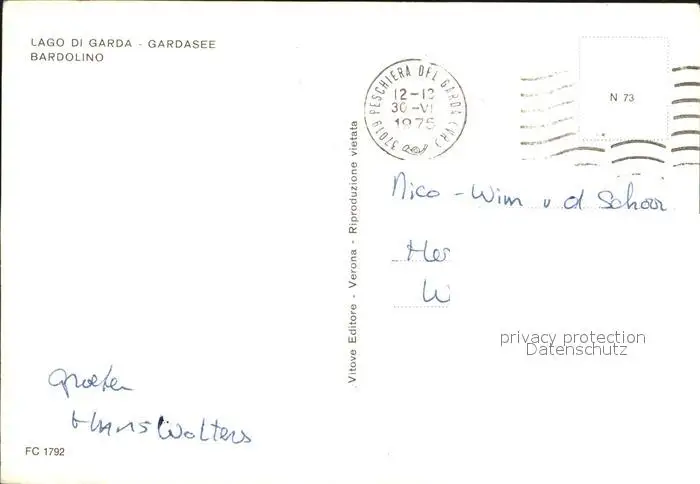 LAGO DI GARDA - GARDASEE
BARDOLINO
37019 PESCHIERA DEL GARDA (VR)
12-13
30-VI
1975
N 73
Vitove Editore - Verona - Riproduzione vietata
Nico - Wim v d Schoor
Her
W
privacy protection
Datenschutz
Groeten
Hans Wolters
FC 1792